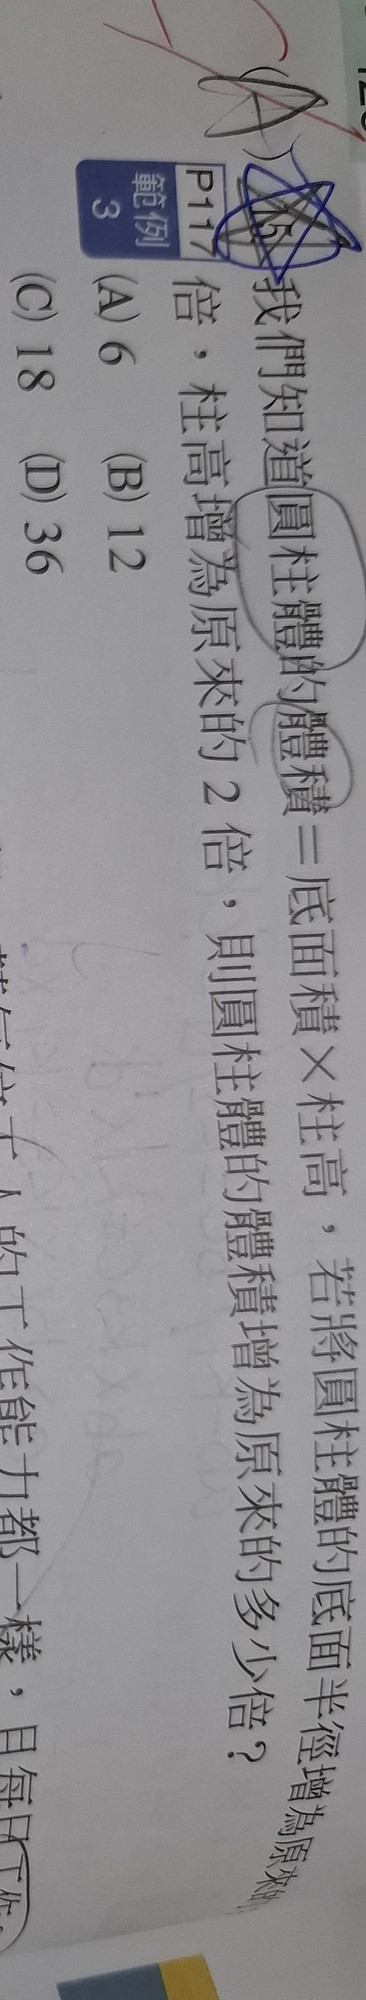 (A)
15
我們知道圓柱體的體積＝底面積×柱高，若將圓柱體的底面半徑增為原來的
P117 倍，柱高增為原來的 2 倍，則圓柱體的體積增為原來的多少倍？
範例 3
(A) 6 (B) 12
(C) 18 (D) 36
的工作能力都一樣，且每日工作